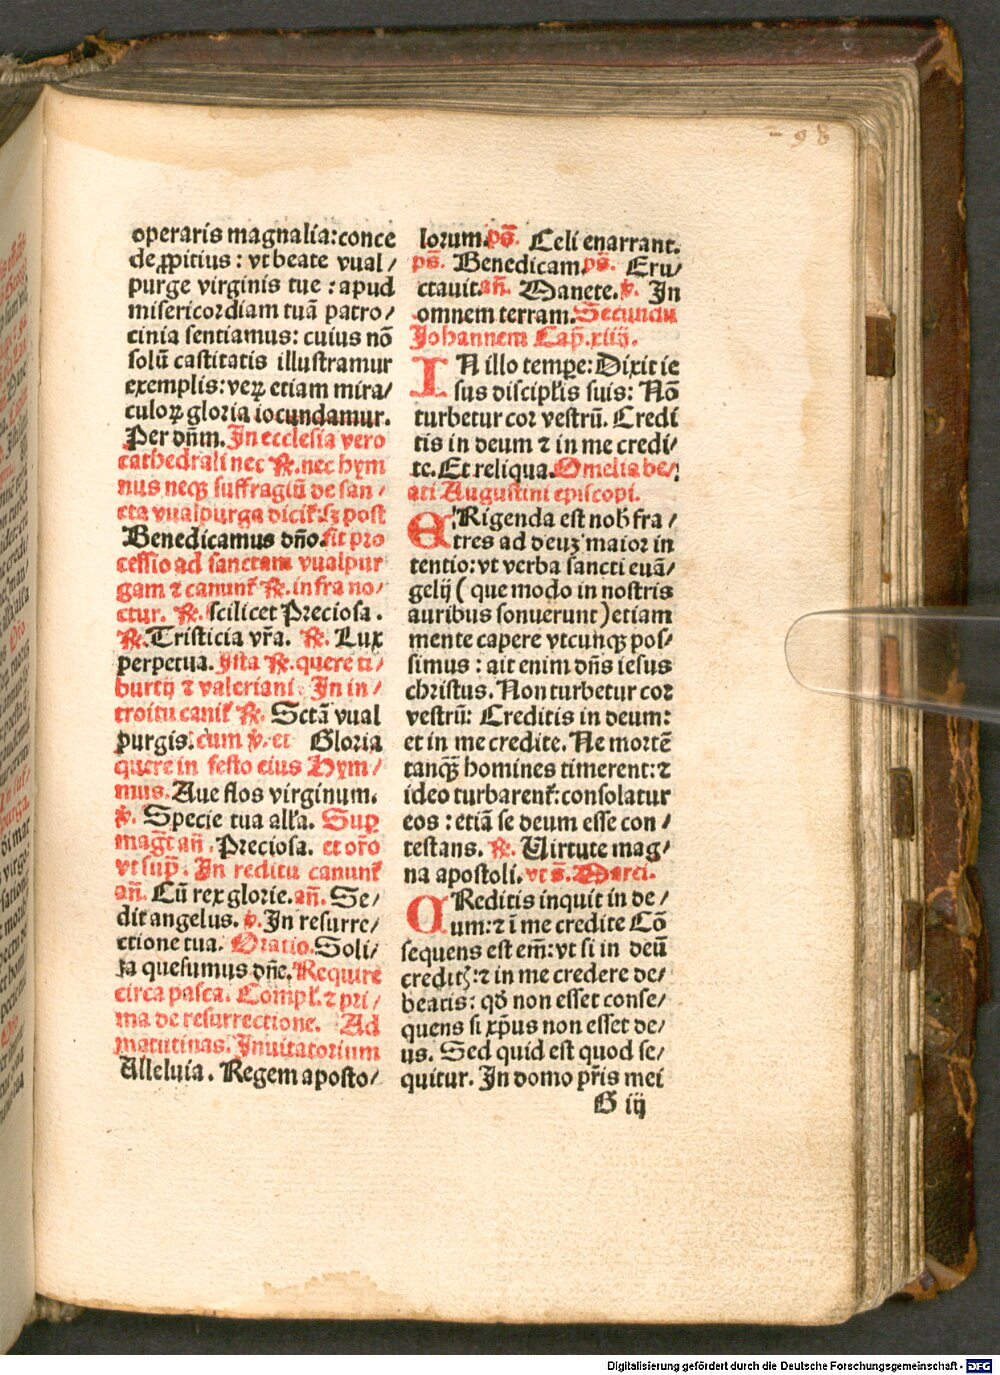 - 98
operaris magnalia: conce
de ꝓpitius : vt beate vual/
purge virginis tue : apud
misericordiam tuā patro/
cinia sentiamus: cuius nō
solū castitatis illustramur
exemplis: veꝝ etiam mira/
culoꝝ gloria iocundamur.
Per dn̄m. In ecclesia vero
cathedrali nec ℟. nec hym
nus neqꝫ suffragiū de san/
cta vualpurga dicit̄. sꝫ post
Benedicamus dn̄o. fit pro
cessio ad sanctam vualpur
gam ⁊ canunt̄ ℟. infra no/
ctur. ℟. scilicet Preciosa.
℟. Tristicia vr̄a. ℟. Lux
perpetua. Ista ℟. quere ti/
burtij ⁊ valeriani. In in/
troitu canit̄ ℟. Sctā vual
purgis. cum ℣. et Gloria
quere in festo eius Hym/
mus. Aue flos virginum.
℣. Specie tua all̄a. Sup
magt̄ an̄. Preciosa. et or̄o
vt sup̄. In reditu canunt̄
an̄. Cū rex glorie. an̄. Se/
dit angelus. ℣. In resurre/
ctione tua. Oratio. Soli/
ta quesumus dn̄e. Require
circa pasca. Compl̄. ⁊ pri/
ma de resurrectione. Ad
matutinas. Inuitatorium
Alleluia. Regem aposto/
lorum. ps̄. Celi enarrant.
ps̄. Benedicam. ps̄. Eru/
ctauit. an̄. Manete. ℣. In
omnem terram. Secundū
Johannem Cap̄. xiiij.
IN illo tempe: Dixit ie
sus discipl̄is suis: Nō
turbetur cor vestrū. Credi
tis in deum ⁊ in me credi/
te. Et reliqua. Omelia be/
ati Augustini episcopi.
ERigenda est nob̄ fra/
tres ad deuꝫ maior in
tentio: vt verba sancti euā/
gelij (que modo in nostris
auribus sonuerunt) etiam
mente capere vtcunqꝫ pos/
simus : ait enim dn̄s iesus
christus. Non turbetur cor
vestrū: Creditis in deum:
et in me credite. Ne mortē
tanqꝫ̄ homines timerent: ⁊
ideo turbarent̄: consolatur
eos : etiā se deum esse con/
testans. ℟. Uirtute mag/
na apostoli. vt s̄. Marci.
CReditis inquit in de/
um: ⁊ ī me credite Cō
sequens est em̄: vt si in deū
creditꝭ: ⁊ in me credere de/
beatis: qd̄ non esset conse/
quens si xp̄us non esset de/
us. Sed quid est quod se/
quitur. In domo pr̄is mei
G iij
Digitalisierung gefördert durch die Deutsche Forschungsgemeinschaft - DFG